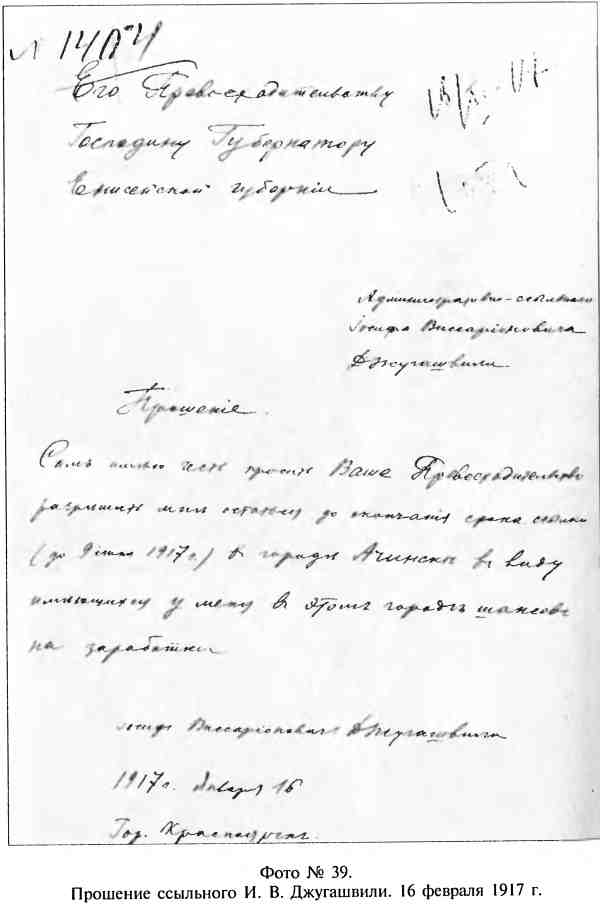 Его Превосходительству
Господину Губернатору
Енисейской губернiи
Административно-ссыльнаго
Iосифа Виссарiоновича
Джугашвили.
Прошенiе.
Симъ имѣю честь просить Ваше Превосходительство
разрѣшить мнѣ остаться до окончанiя срока ссылки
(до 9 iюня 1917 г.) въ городѣ Ачинскѣ въ виду
имѣющихся у меня въ этомъ городѣ шансовъ
на заработки
Iосифъ Виссарiоновичъ Джугашвили
1917 г. Января 16
Гор. Красноярскъ.
Фото № 39.
Прошение ссыльного И. В. Джугашвили. 16 февраля 1917 г.